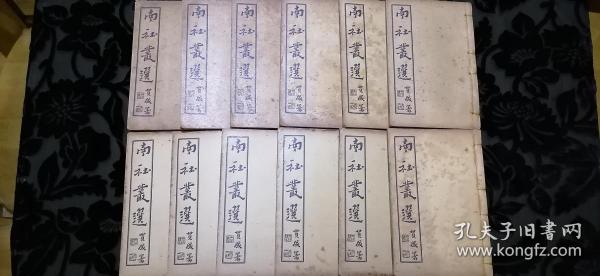 南社叢選
南社叢選
南社叢選
南社叢選
南社叢選
南社叢選
南社叢選
南社叢選
南社叢選
南社叢選
南社叢選
南社叢選
孔夫子旧书网
www.kongfz.com